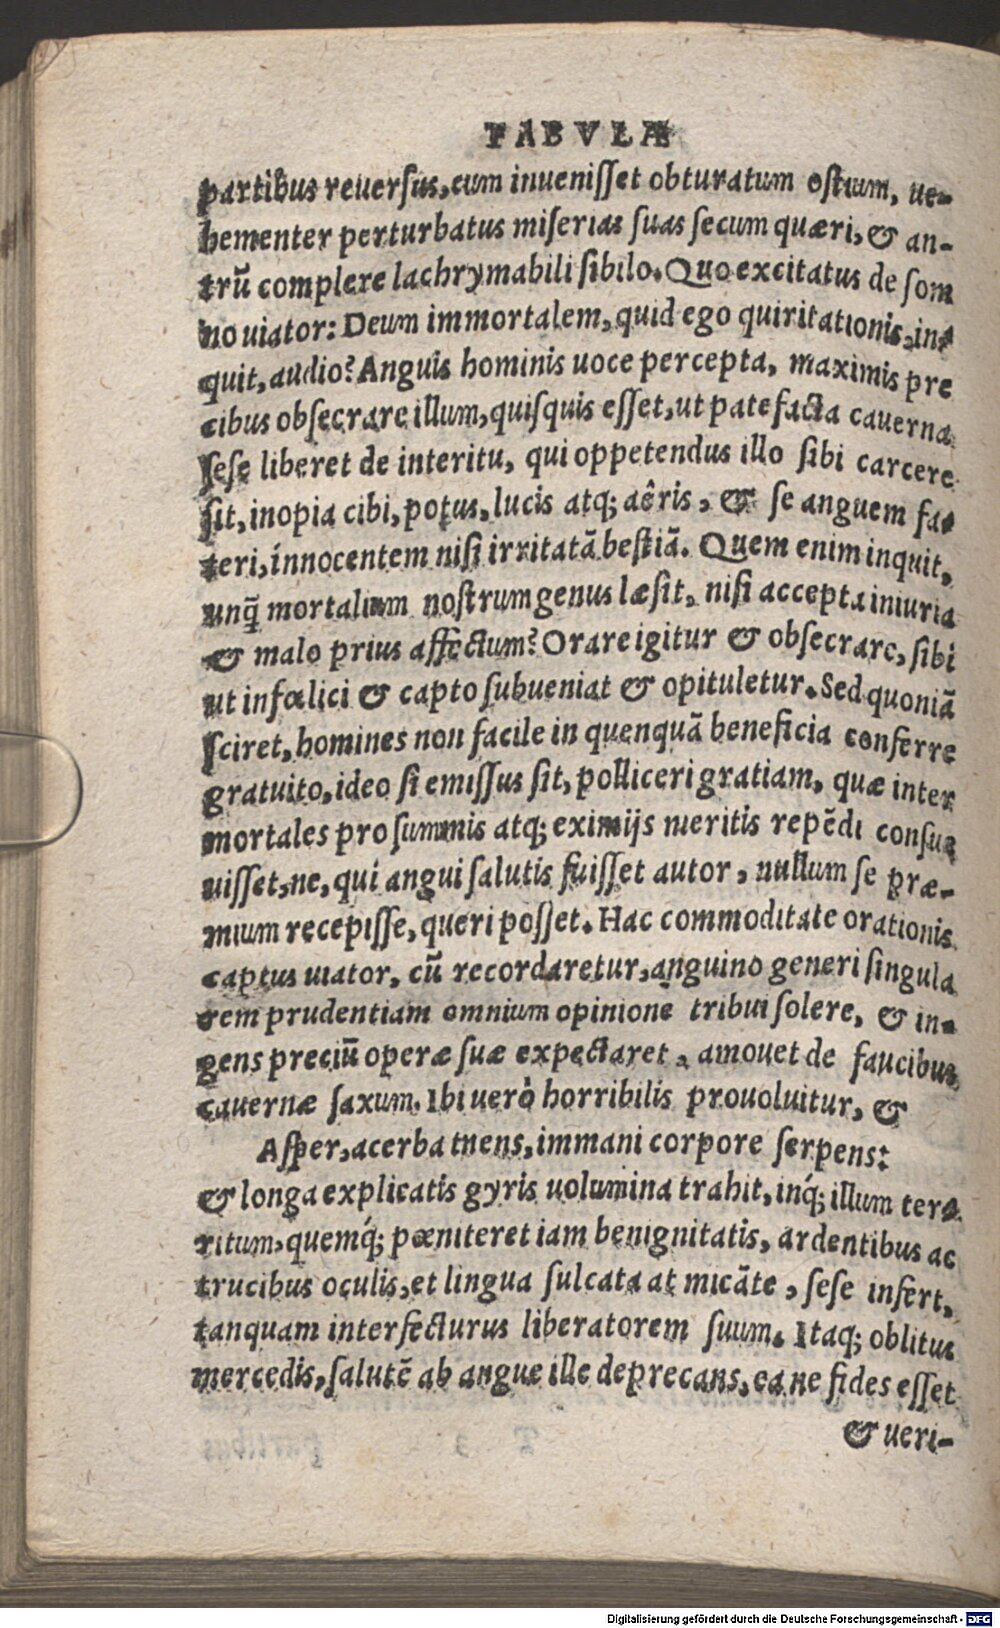 FABVLÆ
partibus reuersus, cum inuenisset obturatum ostium, ue-
hementer perturbatus miserias suas secum quæri, & an-
trū complere lachrymabili sibilo. Quo excitatus de som
no uiator: Deum immortalem, quid ego quiritationis, in-
quit, audio? Anguis hominis uoce percepta, maximis pre
cibus obsecrare illum, quisquis esset, ut patefacta cauerna
sese liberet de interitu, qui oppetendus illo sibi carcere
sit, inopia cibi, potus, lucis atq; aêris, & se anguem fa-
teri, innocentem nisi irritatā bestiā. Quem enim inquit,
unq̃ mortalium nostrum genus læsit, nisi accepta iniuria
& malo prius affectum? Orare igitur & obsecrare, sibi
ut infœlici & capto subueniat & opituletur. Sed quoniā
sciret, homines non facile in quenquā beneficia conferre
gratuito, ideo si emissus sit, polliceri gratiam, quæ inter
mortales pro summis atq; eximijs meritis repēdi consue
uisset, ne, qui angui salutis fuisset autor, nullum se præ-
mium recepisse, queri posset. Hac commoditate orationis
captus uiator, cū recordaretur, anguino generi singula
rem prudentiam omnium opinione tribui solere, & in-
gens preciū operæ suæ expectaret, amouet de faucibus
cauernæ saxum. Ibi uerò horribilis prouoluitur, &
Asper, acerba tuens, immani corpore serpens:
& longa explicatis gyris uolumina trahit, inq́; illum ter-
ritum, quemq́; pœniteret iam benignitatis, ardentibus ac
trucibus oculis, et lingua sulcata at micāte, sese infert,
tanquam interfecturus liberatorem suum. Itaq; oblitus
mercedis, salutē ab angue ille deprecans, ea ne fides esset
& ueri-
Digitalisierung gefördert durch die Deutsche Forschungsgemeinschaft - DFG